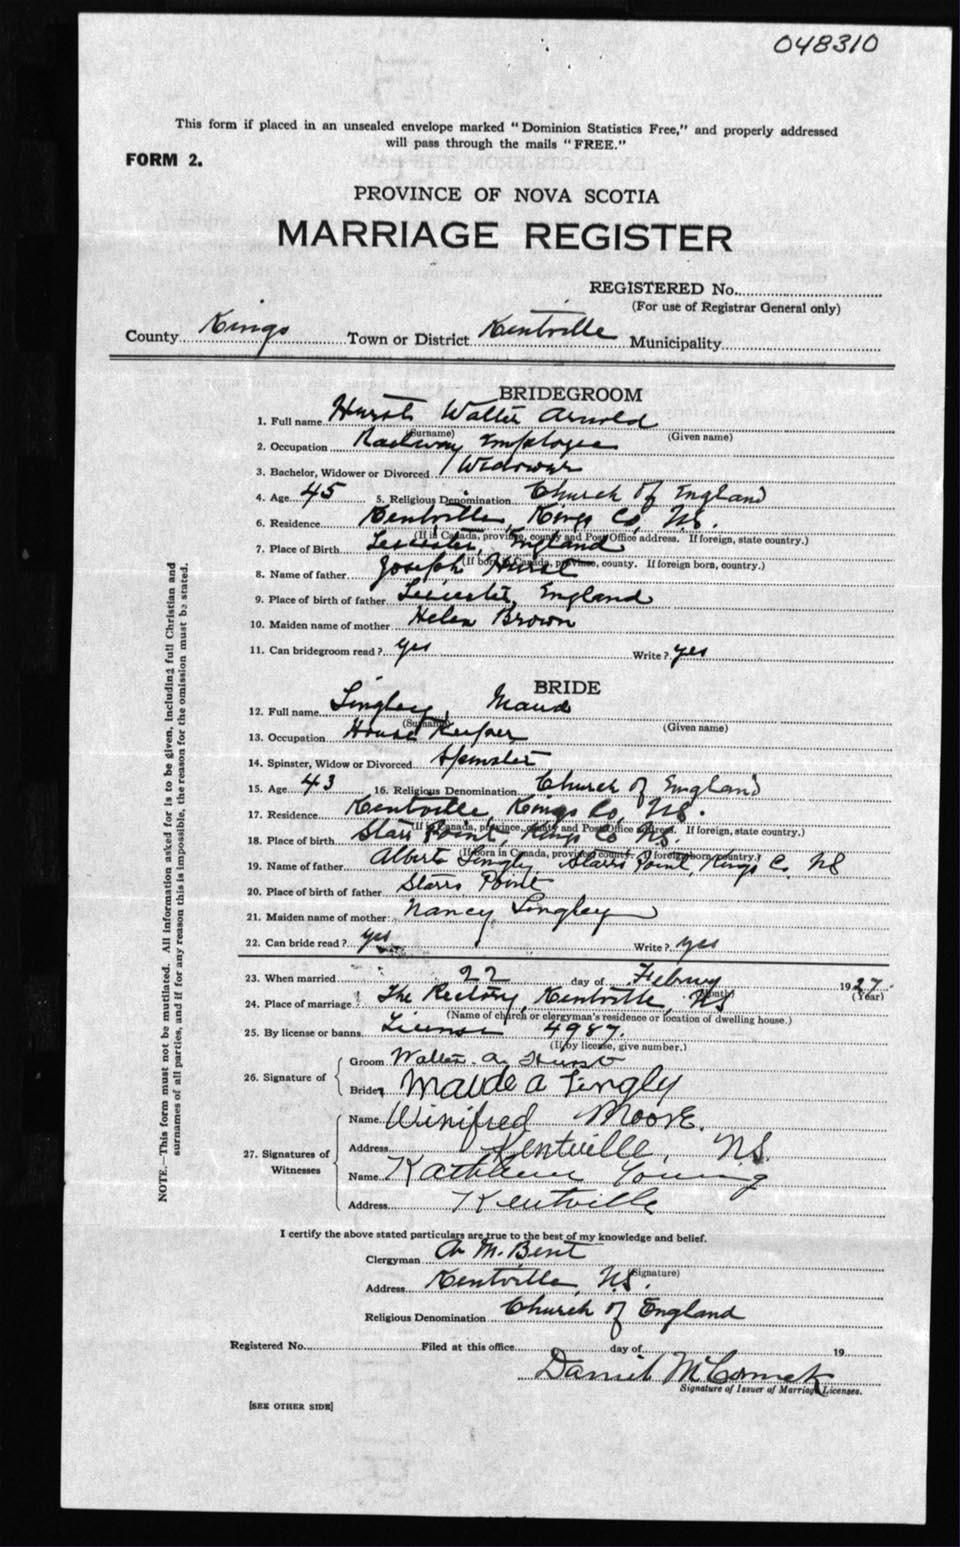 048310
This form if placed in an unsealed envelope marked "Dominion Statistics Free," and properly addressed
will pass through the mails "FREE."
FORM 2.
PROVINCE OF NOVA SCOTIA
MARRIAGE REGISTER
REGISTERED No.
(For use of Registrar General only)
County Kings Town or District Kentville Municipality
BRIDEGROOM
1. Full name Hurst Walter Arnold
(Surname) (Given name)
2. Occupation Railway Employee
3. Bachelor, Widower or Divorced Widower
4. Age 45 5. Religious Denomination Church of England
6. Residence Kentville, Kings Co, N.S.
(If in Canada, province, county and Post Office address. If foreign, state country.)
7. Place of Birth Leicester, England
(If born in Canada, province, county. If foreign born, country.)
8. Name of father Joseph Hurst
9. Place of birth of father Leicester, England
10. Maiden name of mother Helen Brown
11. Can bridegroom read? yes Write? yes
BRIDE
12. Full name Lingley, Maud
(Surname) (Given name)
13. Occupation House Keeper
14. Spinster, Widow or Divorced Spinster
15. Age 43 16. Religious Denomination Church of England
17. Residence Kentville, Kings Co, N.S.
(If in Canada, province, county and Post Office address. If foreign, state country.)
18. Place of birth Starr Point, Kings Co N.S.
(If born in Canada, province, county. If foreign born, country.)
19. Name of father Albert Lingly Starrs Point, Kings Co. NS
20. Place of birth of father Starrs Point
21. Maiden name of mother Nancy Lingley
22. Can bride read? yes Write? yes
23. When married 22 day of Februy 1927
(Month) (Year)
24. Place of marriage The Rectory, Kentville, NS
(Name of church or clergyman's residence or location of dwelling house.)
25. By license or banns License 4987.
(If by license, give number.)
26. Signature of
Groom Walter. A. Hurst
Bride Maude A Lingly
27. Signatures of Witnesses
Name Winifred Moore.
Address Kentville, N.S.
Name Kathleen Young
Address Kentville
I certify the above stated particulars are true to the best of my knowledge and belief.
Clergyman A. M. Bent
(Signature)
Address Kentville, N.S.
Religious Denomination Church of England
Registered No. Filed at this office day of 19
Daniel McCormack
Signature of Issuer of Marriage Licenses.
[SEE OTHER SIDE]
NOTE.—This form must not be mutilated. All information asked for is to be given, including full Christian and
surnames of all parties, and if for any reason this is impossible, the reason for the omission must be stated.